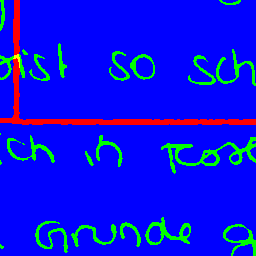 ist so sch
ich in rose
Grunde g